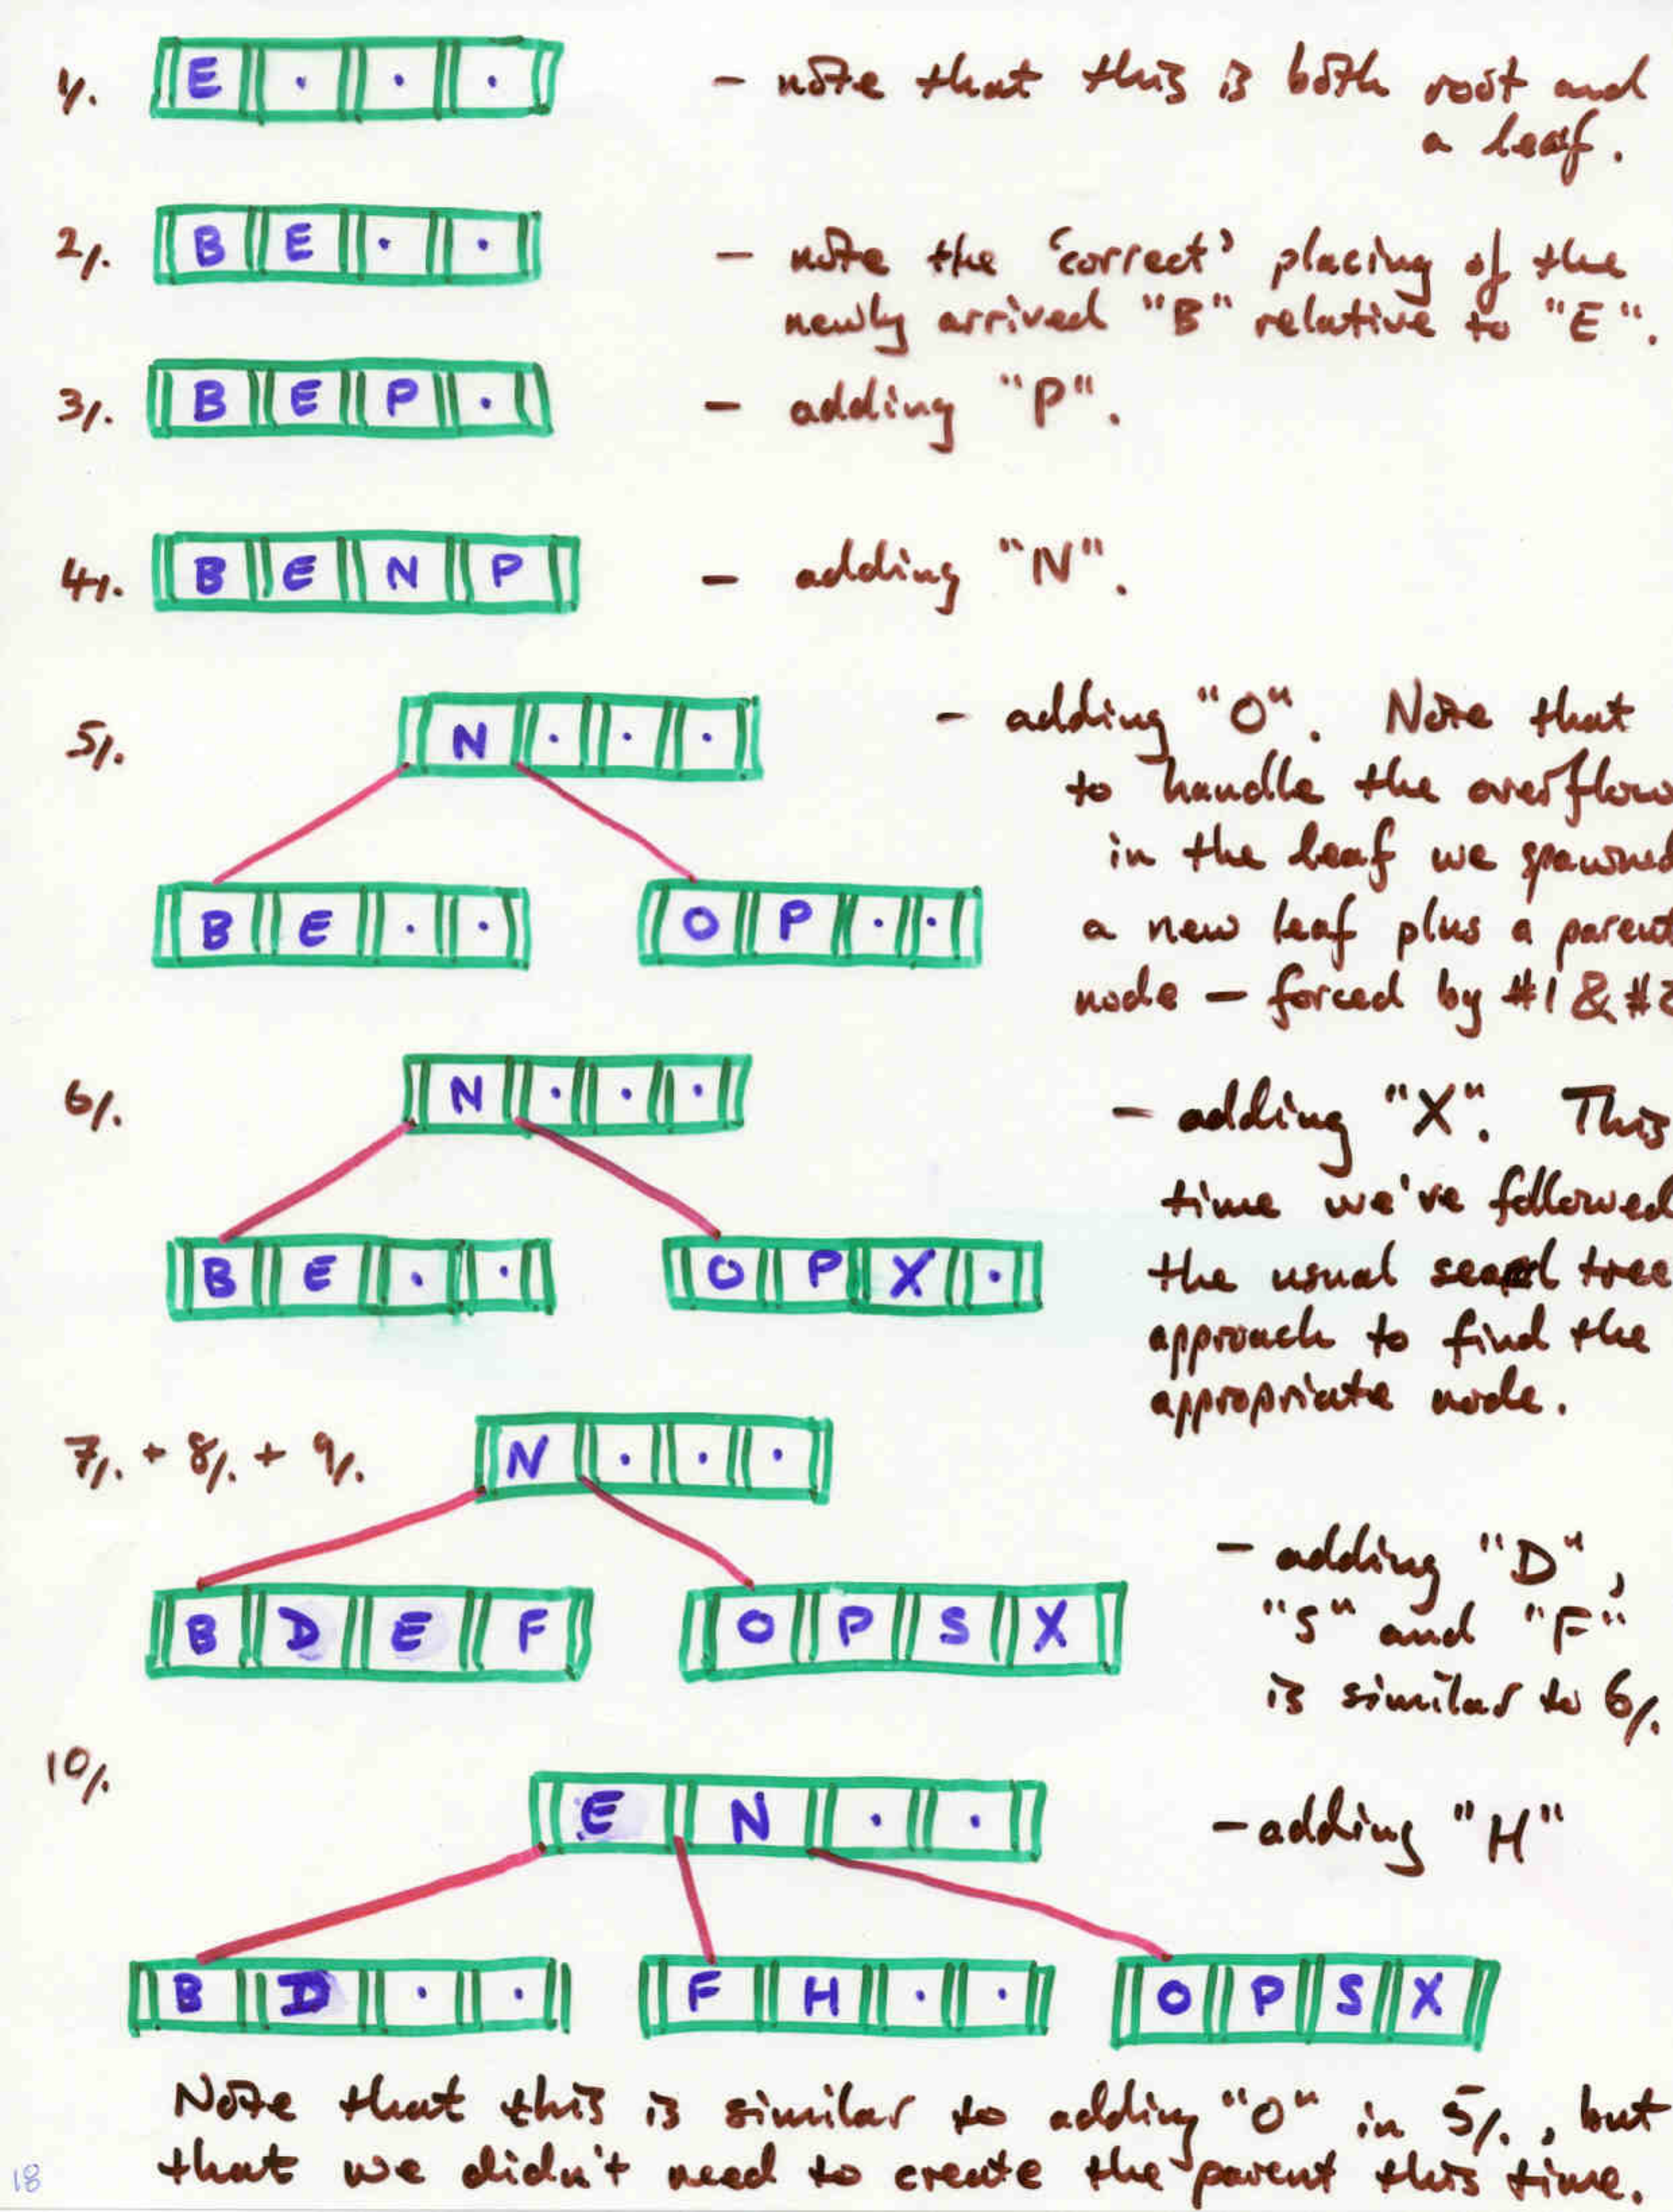 1/. E . . . - note that this is both root and
a leaf.
2/. B E . . - note the 'correct' placing of the
newly arrived "B" relative to "E".
3/. B E P . - adding "P".
4/. B E N P - adding "N".
5/. N . . . - adding "O". Note that
to handle the overflow
in the leaf we spawned
B E . . O P . . a new leaf plus a parent
node - forced by #1 &
6/. N . . . - adding "X". This
time we've followed
B E . . O P X . the usual tree
approach to find the
appropriate node.
7/. + 8/. + 9/. N . . .
- adding "D",
B D E F O P S X "S" and "F"
is similar to 6/.
10/. E N . . - adding "H"
B D . . F H . . O P S X
Note that this is similar to adding "O" in 5/., but
that we didn't need to create the parent this time.
18